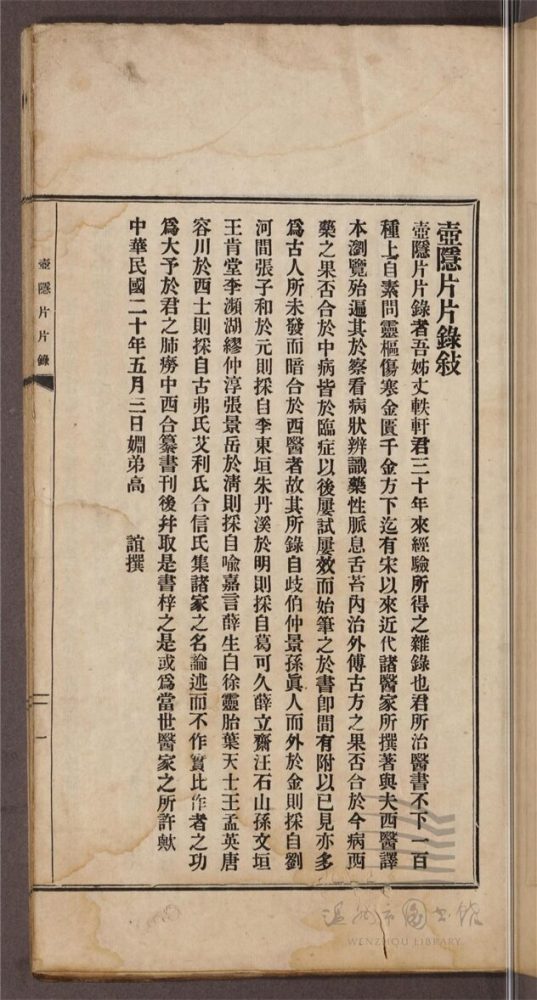 壺隱片片錄敍
壺隱片片錄者吾姊丈軼軒君三十年來經驗所得之雜錄也君所治醫書不下一百
種上自素問靈樞傷寒金匱千金方下迄有宋以來近代諸醫家所撰著與夫西醫譯
本瀏覽殆遍其於察看病狀辨識藥性脈息舌苔內治外傅古方之果否合於今病西
藥之果否合於中病皆於臨症以後屢試屢效而始筆之於書卽間有附以已見亦多
爲古人所未發而暗合於西醫者故其所錄自歧伯仲景孫眞人而外於金則採自劉
河間張子和於元則採自李東垣朱丹溪於明則採自葛可久薛立齋汪石山孫文垣
王肯堂李瀕湖繆仲淳張景岳於清則採自喩嘉言薛生白徐靈胎葉天士王孟英唐
容川於西士則採自古弗氏艾利氏合信氏集諸家之名論述而不作實比作者之功
爲大予於君之肺癆中西合纂書刊後幷取是書梓之是或爲當世醫家之所許歟
中華民國二十年五月三日婣弟高 誼撰
壺隱片片錄
一
溫州市圖書館
WENZHOU LIBRARY